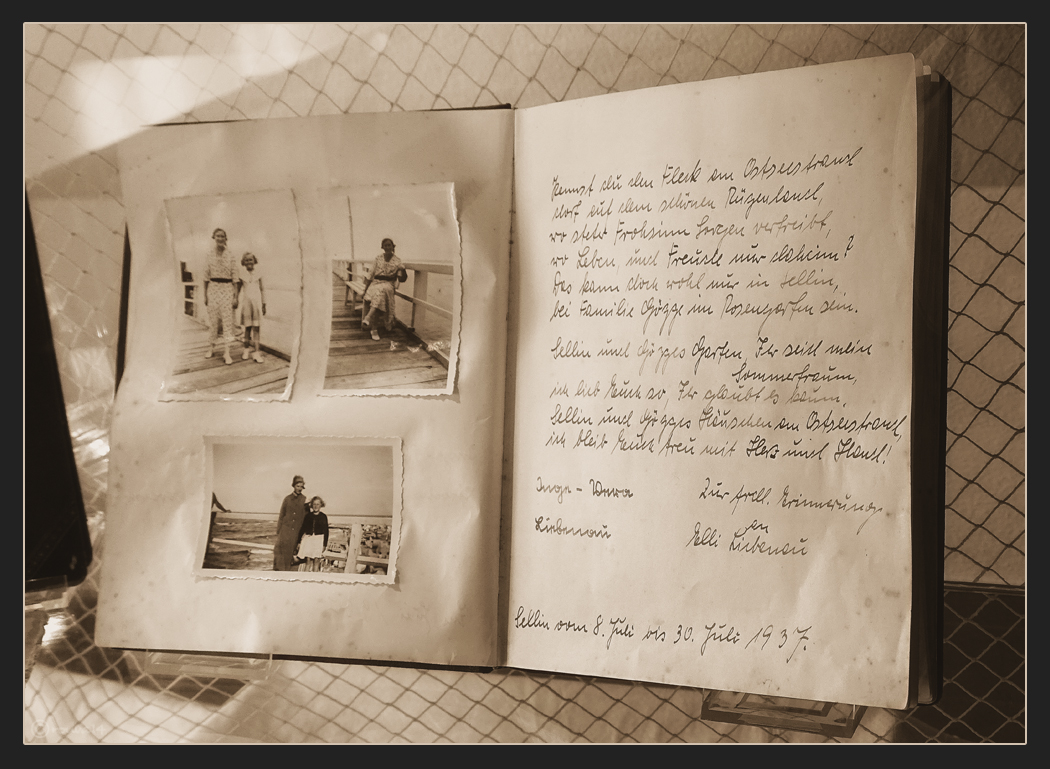 Kennst du den Fleck am Ostseestrand
dort auf dem schönen Rügenland,
wo stets Frohsinn Sorgen vertreibt,
wo Leben, und Freude nur daheim?
Das kann doch wohl nur in Sellin,
bei Familie Gögge im Rosengarten sein.
Sellin und Gögges Garten, Ihr seid mein
Sommertraum,
ich lieb Euch so, Ihr glaubt es kaum,
Sellin und Gögges Häuschen am Ostseestrand,
ich bleib Euch treu mit Herz und Hand!
Inge - Vera
Liebenau
Zur frdl. Erinnerung
an
Elli Liebenau
Sellin vom 8. Juli bis 30. Juli 1937.